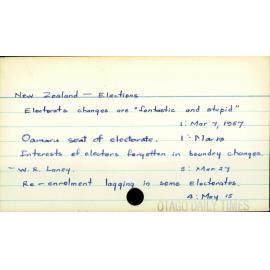 New Zealand — Elections
Electorate changes are "fantastic and stupid"
1: Mar 7, 1957
Oamaru seat of electorate. 1: Mar
Interests of electors forgotten in boundry changes.
- W. R. Laney. 5: Mar 27
Re-enrolment lagging in some electorates.
4: May 15
OTAGO DAILY TIMES